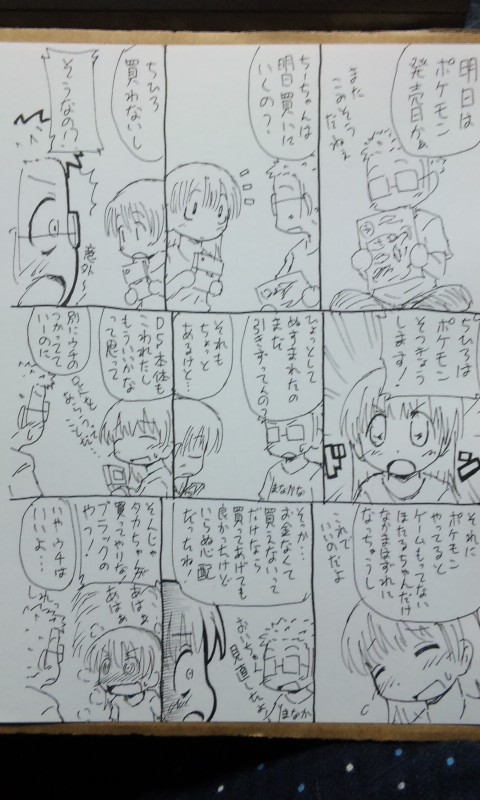 明日は
ポケモン
発売日かぁ
まだ
こみそう
だねぇ
ちーちゃんは
明日買いに
いくの？
ちひろ
買わないし
そうなの!?
意外～
ちひろは
ポケモン
そつぎょう
します！
ひょっとして
ぬすまれたの
まだ
引きずってんの？
まなかな
それも
ちょっと
あるけど…
DS本体も
こわれたし
もういっかな
って思って
別にウチの
つかってて
いーのに
それに
ポケモン
やってると
ゲームもってない
ほたるちゃんだけ
なかまはずれに
なっちゃうし
これで
いいのだよ
そっか…
お金なくて
買えないって
だけなら
買ってあげても
良かったけど
いらぬ心配
だったね！
まなかな
そんじゃ
タカちゃんが
買ってやりな！
ブラックの
やつ！
あはぁ
あはぁ
いやウチは
いいよ…